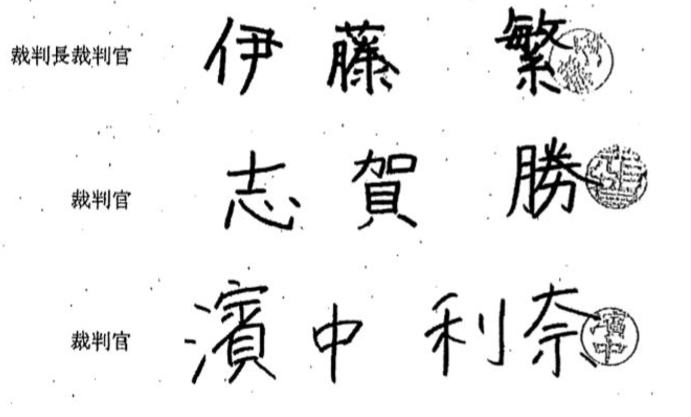 裁判長裁判官 伊藤 繁
裁判官 志賀 勝
裁判官 濱中 利奈
濱中